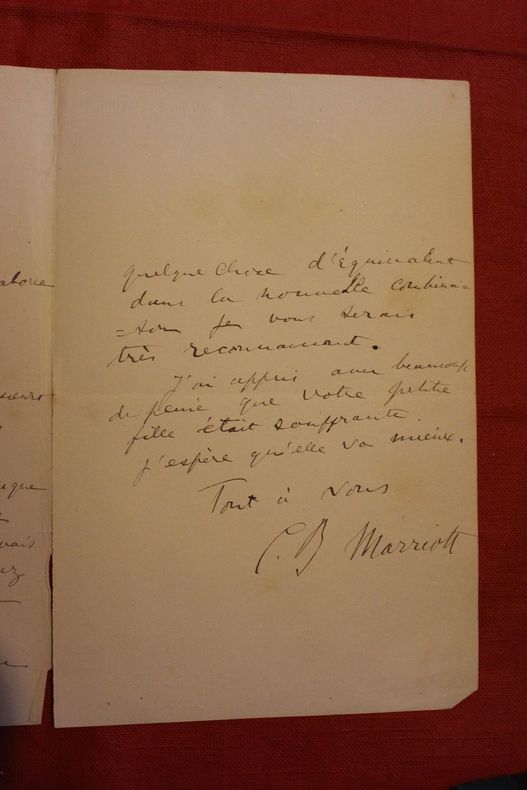 quelque chose d'équivalent
dans la nouvelle combinai=
=son je vous serais
très reconnaissant.
J'ai appris avec beaucoup
de peine que votre petite
fille était souffrante.
J'espère qu'elle va mieux.
Tout à vous
C. B Marriott